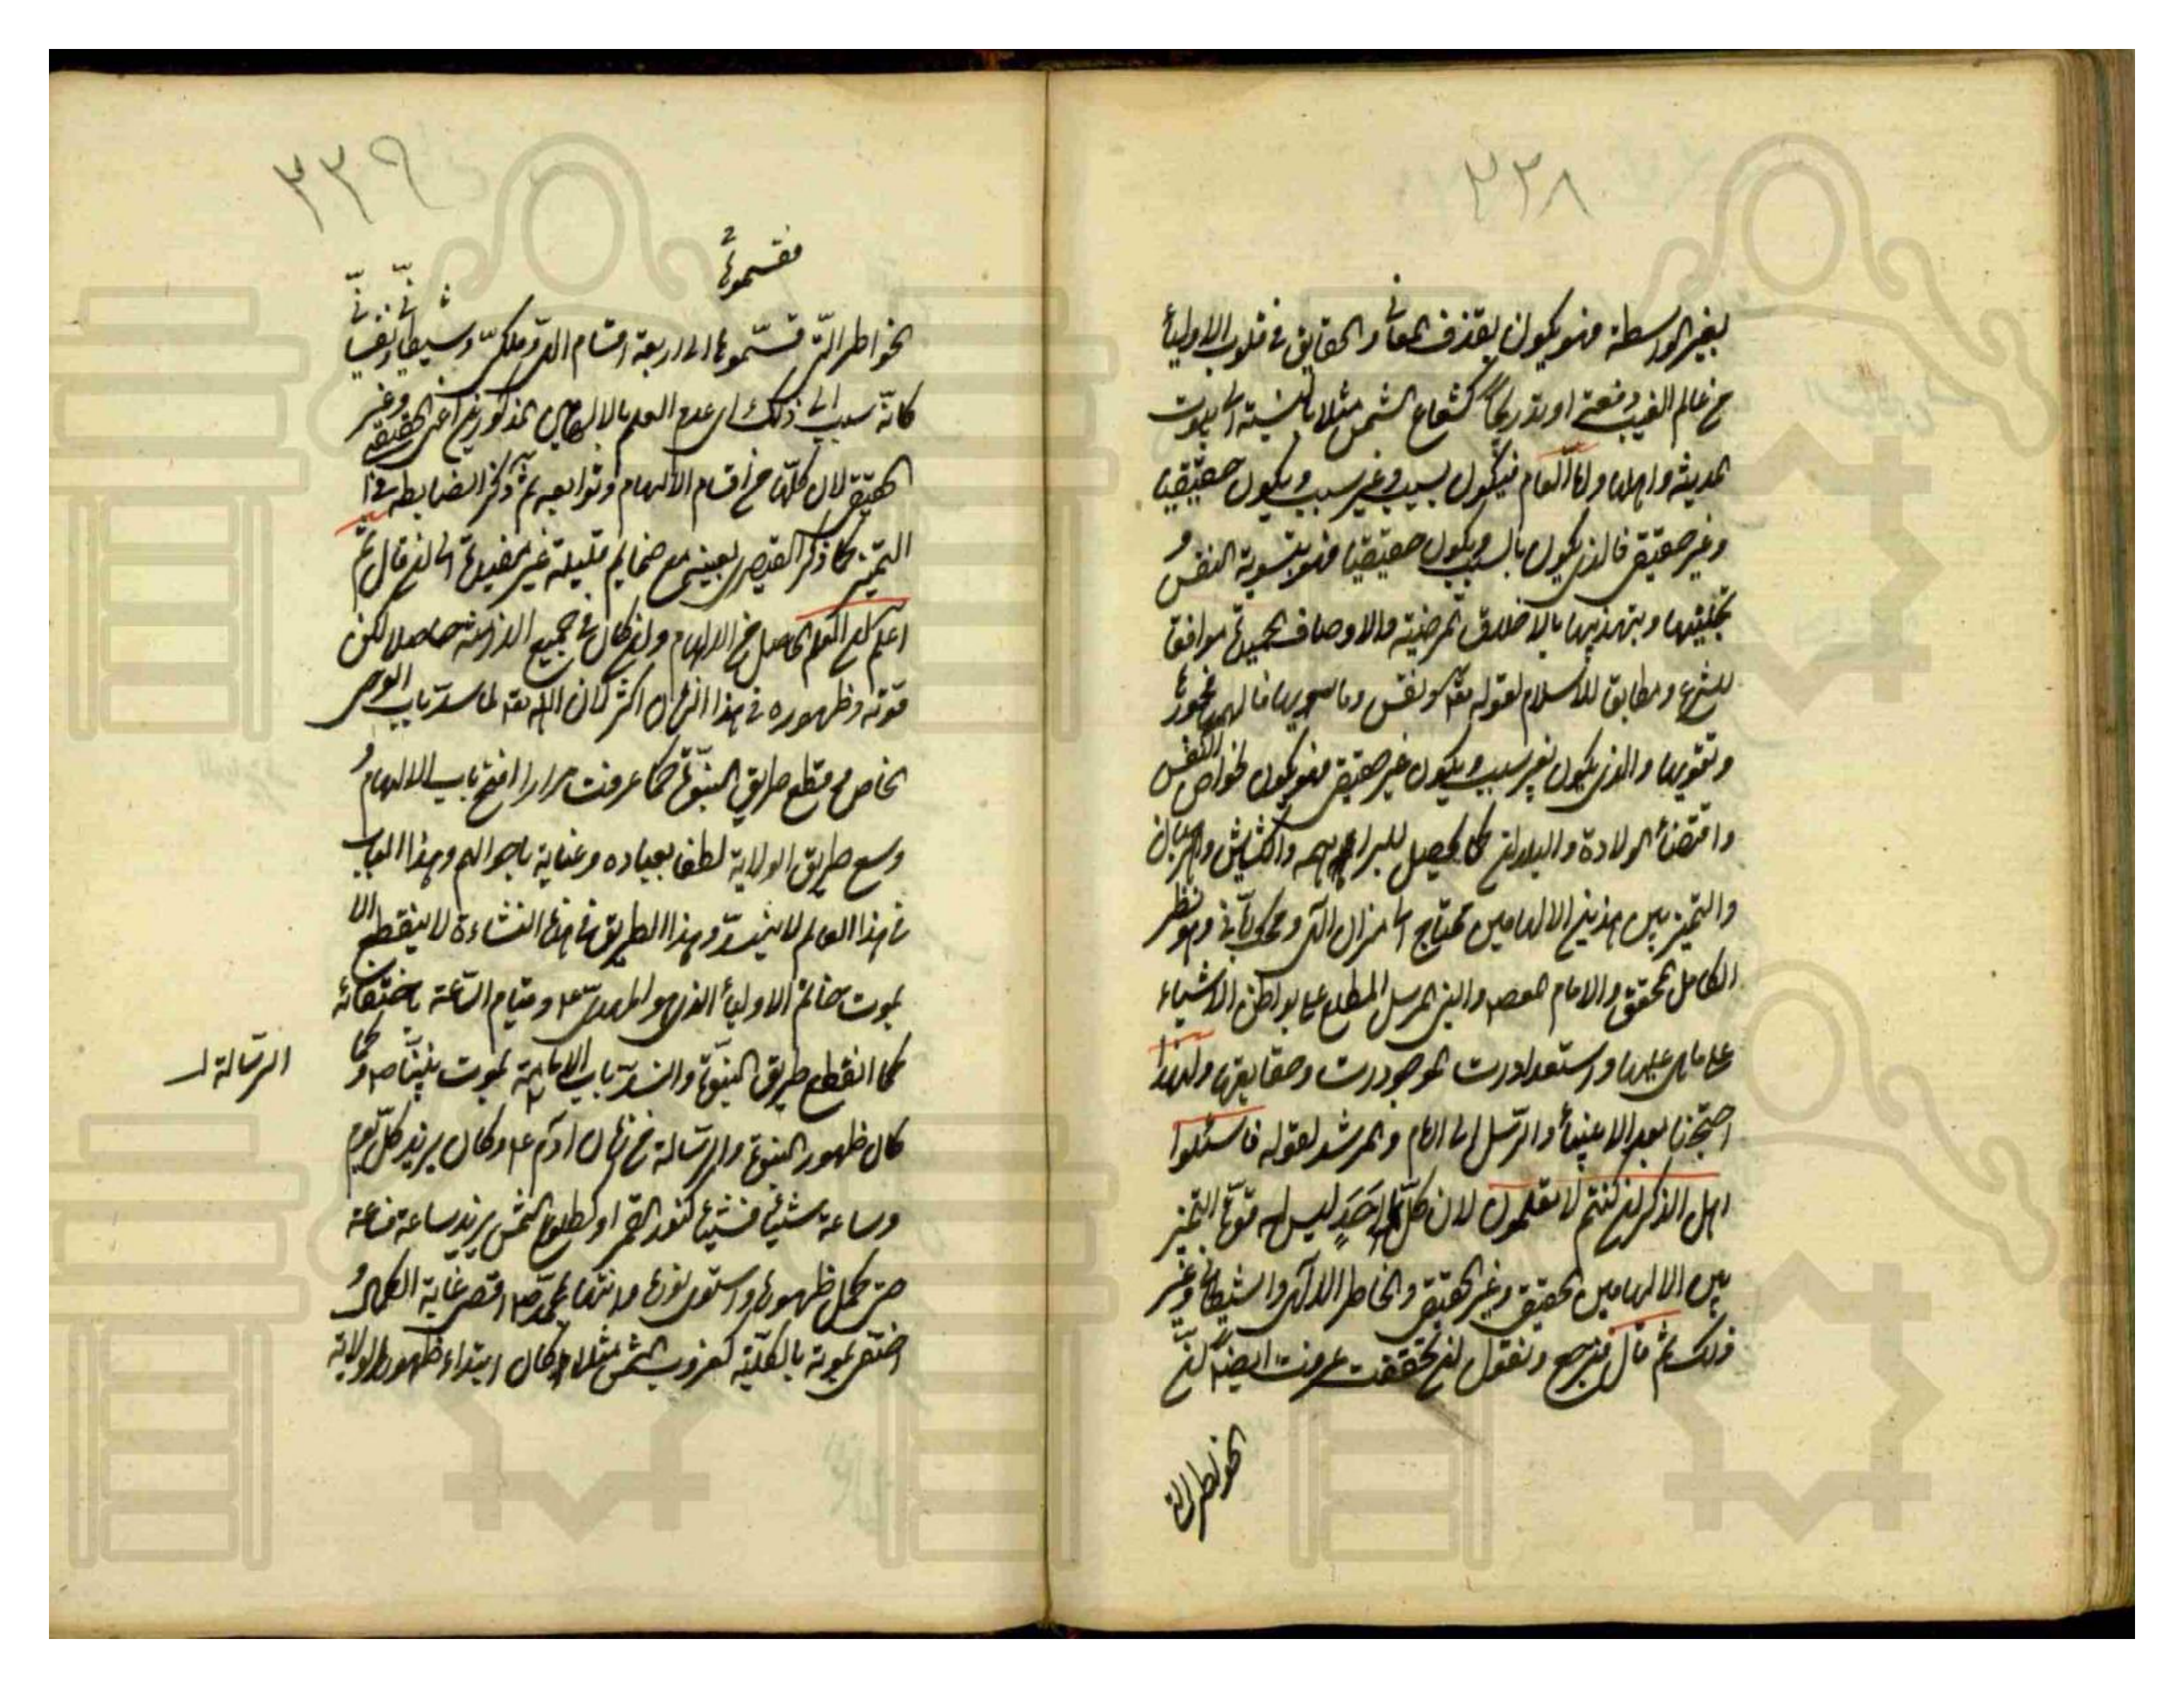 ٣٣٨
بغير الواسطة فهو يكون بقذف المعانى والحقايق فى قلوب الاولياء
من عالم الغيب دفعة او تدريجاً كشعاع الشمس مثلا بالنسبة الى بيوت
المدينة واهلها واما العام فيكون بسبب وغير سبب ويكون حقيقيا
وغير حقيقى فالذى يكون بالسبب ويكون حقيقيا فهو بتسوية النفس و
تحليتها وبتهذيبها بالاخلاق المرضية والاوصاف الحميدة موافقا
للشرع ومطابق للاسلام لقوله تعالى ونفس وما سويها فالهمها فجورها
وتقويها والذى يكون بغير سبب ويكون غير حقيقى فهو يكون لخواص النفس
واقتضاء الولادة والبلدان كما يحصل للبراهمه والكشايش والرهبان
والتميز بين هذين الالهامين محتاج الى ميزان الهى ومحك ربانى وهو نظر
الكامل المحقق والامام المعصوم والنبى المرسل المطلع على بواطن الاشياء
على ما هى عليها واستعدادات الموجودات وحقايقها ولهذا
احتجنا بعد الانبياء والرسل الى الامام والمرشد لقوله فاسئلوا
اهل الذكر ان كنتم لا تعلمون لان كل احد ليس له قوة التميز
بين الالهامين الحقيقى وغير الحقيقى والخاطر الالهى والشيطانى وغير
ذلك ثم قال فنرجع ونقول ان تحققت عرفت ايضا ان
الخواطر التى
٣٣٩
قسموها
الخواطر التى قسموها الى اربعة اقسام الهى وملكى وشيطانى ونفسانى
كانه سبب الى ذلك اى عدم العلم بالالهامين المذكورين اعنى الحقيقى وغير
الحقيقى لان كلها من اقسام الالهام وتوابعه ثم ذكر الضابطة فى
التميز كما ذكر القيصرى بعينه مع ضمايم قليلة غير مفيدة الى ان قال ثم
اعلم ان العلم الحاصل من الالهام وان كان فى جميع الازمنة حاصلا لكن
قوته وظهوره فى هذا الزمان اكثر لان الله تعالى لما سد باب الوحى
الخاص وقطع طريق النبوة كما عرفت مرارا افتح باب الالهام و
وسع طريق الولاية لطفا بعباده وعناية باحوالهم وهذا الباب
فى هذا العالم لا ينسد وهذا الطريق فى هذه النشاءة لا ينقطع الا
بموت خاتم الاولياء الذى هو المهدى ع وقيام الساعة باختفائه
كما انقطع طريق النبوة وانسد باب الامامة بموت نبينا ص وكما
الرسالة
كان ظهور النبوة والرسالة من زمان ادم ع وكان يزيد كل يوم
وساعة شيئا فشيئا كنور القمر او كطلوع الشمس يزيد ساعة فساعة
حتى كمل ظهورها واستوى نورها وانتها بمحمد ص اقصى غاية الكمال و
اختفى بموته بالكلية كغروب الشمس مثلا وكان ابتداء ظهور الولاية